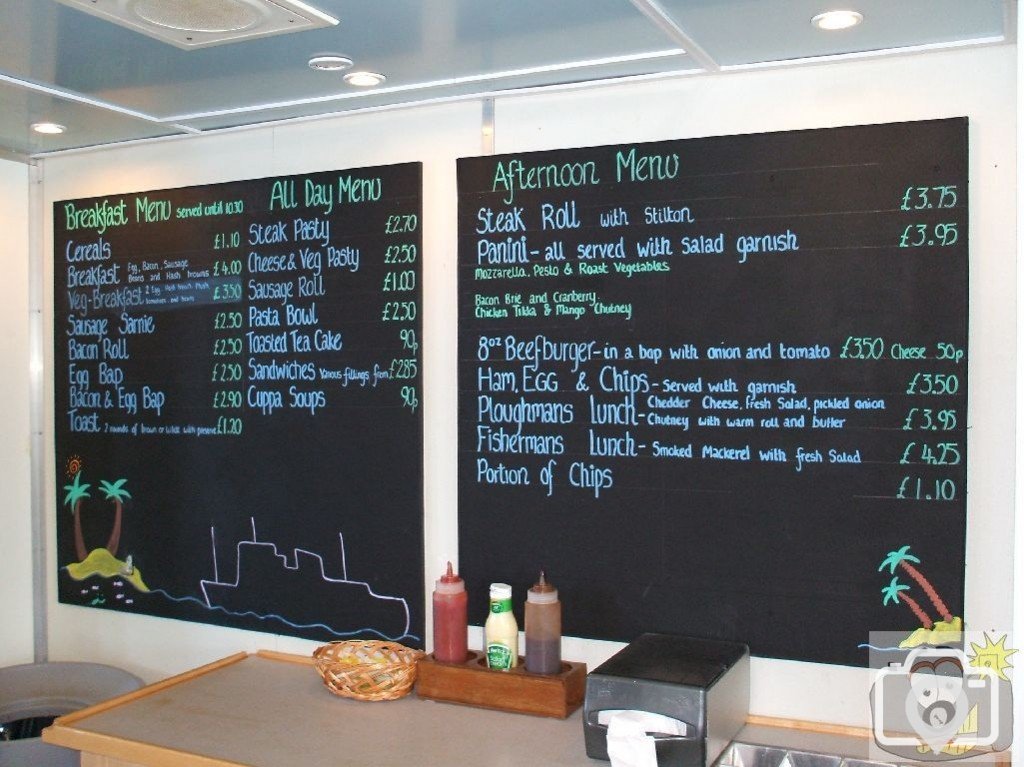 Breakfast Menu served until 10.30
Cereals £1.10
Breakfast Egg, Bacon, Sausage £4.00
Beans and Hash browns
Veg-Breakfast 2 Egg, Hash brown, Mush £3.50
tomatoes and beans
Sausage Sarnie £2.50
Bacon Roll £2.50
Egg Bap £2.50
Bacon & Egg Bap £2.90
Toast 2 rounds of brown or white with preserve £1.20
All Day Menu
Steak Pasty £2.70
Cheese & Veg Pasty £2.50
Sausage Roll £1.00
Pasta Bowl £2.50
Toasted Tea Cake 90p
Sandwiches Various fillings from £2.85
Cuppa Soups 90p
Afternoon Menu
Steak Roll with Stilton £3.75
Panini - all served with salad garnish £3.95
Mozzarella, Pesto & Roast Vegetables
Bacon Brie and Cranberry
Chicken Tikka & Mango Chutney
8oz Beefburger - in a bap with onion and tomato £3.50 Cheese 50p
Ham, Egg & Chips - Served with garnish £3.50
Ploughmans Lunch - Chedder Cheese, Fresh Salad, pickled onion
Chutney with warm roll and butter £3.95
Fishermans Lunch - Smoked Mackerel with fresh Salad £4.25
Portion of Chips £1.10